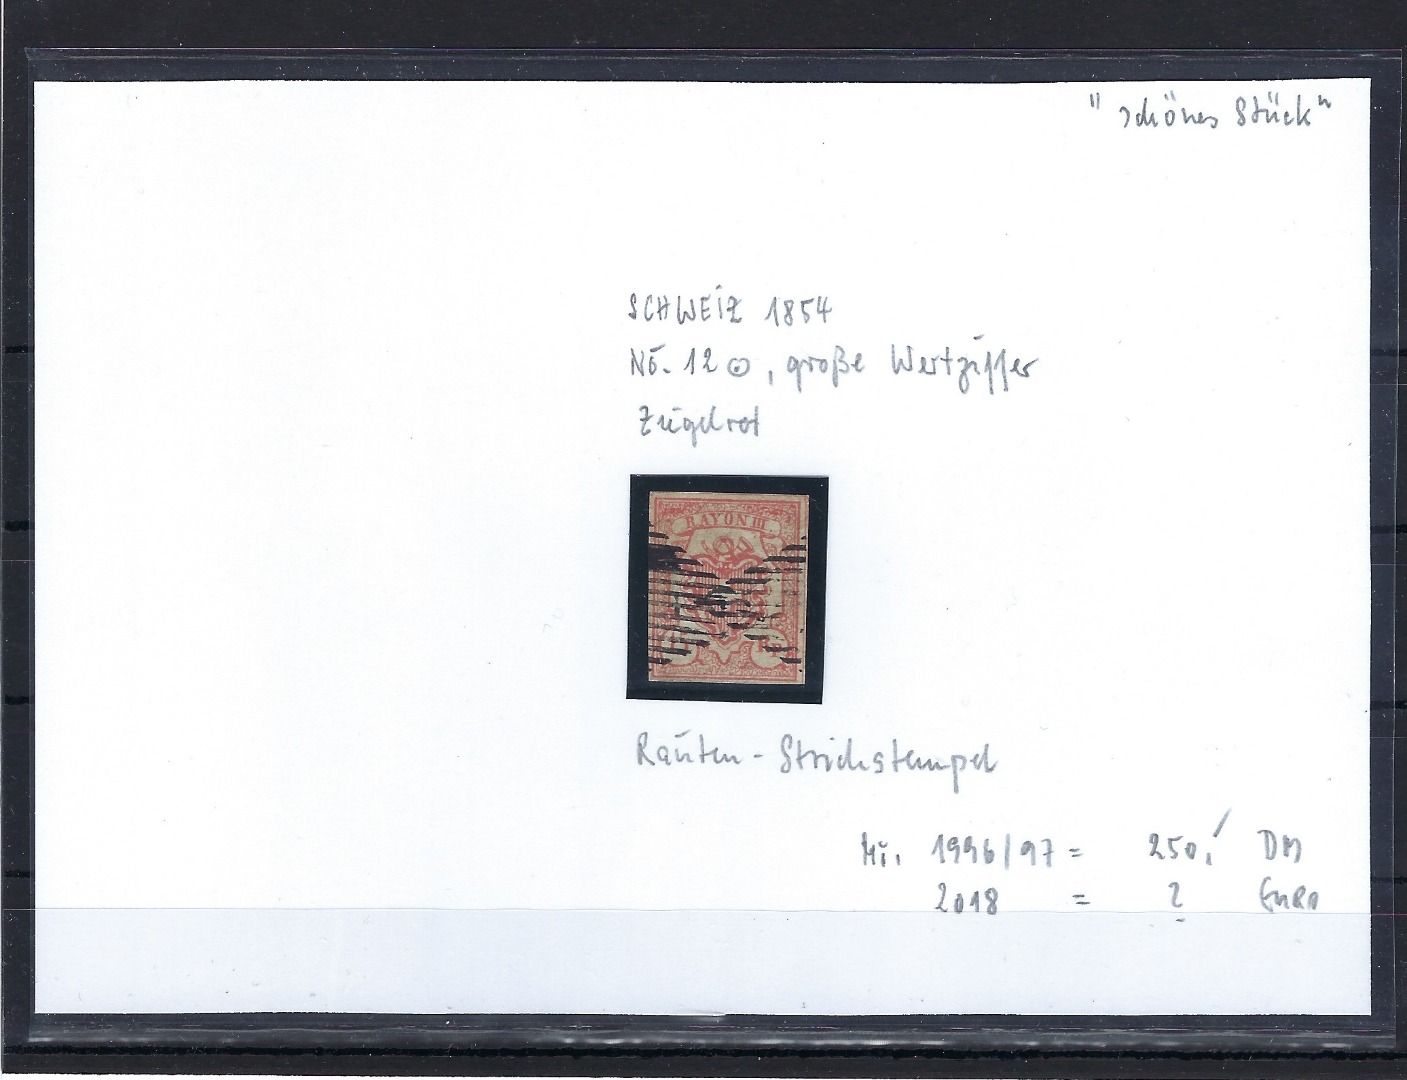 "schönes Stück"
SCHWEIZ 1854
NŌ. 12 ⊙, große Wertziffer
Ziegelrot
RAYON III
Rauten-Strichstempel
Mi. 1996/97 = 250,- DM
2018 = ? EURO